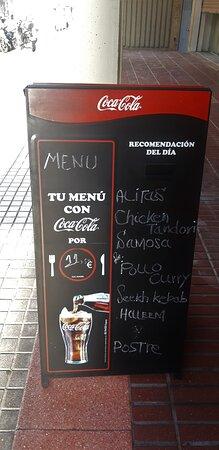 Coca-Cola
MENU
TU MENÚ
CON
Coca-Cola
POR
11,-€
Coca-Cola
RECOMENDACIÓN
DEL DÍA
ALITAS
Chicken
Tandori
Samosa
Pollo
Curry
Seekh kebab
HALEEM
Y
POSTRE